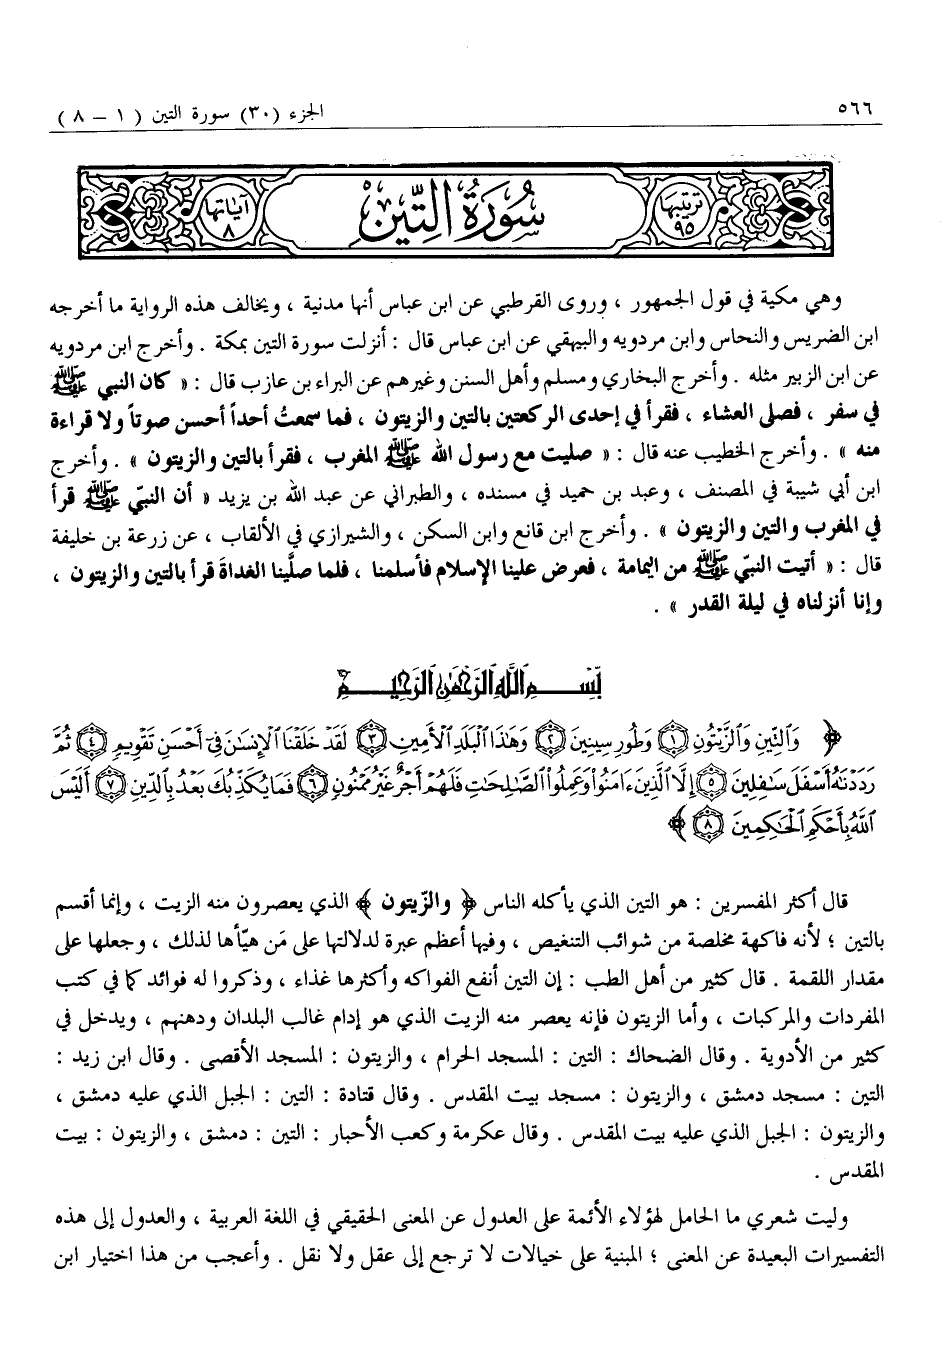 ٥٦٦
الجزء (٣٠) سورة التين ( ١ – ٨ )
ترتيبها ٩٥
سُورَةُ التِّينِ
آياتها ٨
وهي مكية في قول الجمهور ، وروى القرطبي عن ابن عباس أنها مدنية ، ويخالف هذه الرواية ما أخرجه
ابن الضريس والنحاس وابن مردويه والبيهقي عن ابن عباس قال : أنزلت سورة التين بمكة . وأخرج ابن مردويه
عن ابن الزبير مثله . وأخرج البخاري ومسلم وأهل السنن وغيرهم عن البراء بن عازب قال : « كان النبي ﷺ
في سفر ، فصلى العشاء ، فقرأ في إحدى الركعتين بالتين والزيتون ، فما سمعتُ أحداً أحسن صوتاً ولا قراءة
منه » . وأخرج الخطيب عنه قال : « صليت مع رسول الله ﷺ المغرب ، فقرأ بالتين والزيتون » . وأخرج
ابن أبي شيبة في المصنف ، وعبد بن حميد في مسنده ، والطبراني عن عبد الله بن يزيد « أن النبيّ ﷺ قرأ
في المغرب والتين والزيتون » . وأخرج ابن قانع وابن السكن ، والشيرازي في الألقاب ، عن زرعة بن خليفة
قال : « أتيت النبيّ ﷺ من اليمامة ، فعرض علينا الإسلام فأسلمنا ، فلما صلَّينا الغداةَ قرأ بالتين والزيتون ،
وإنا أنزلناه في ليلة القدر » .
بِسْمِ ٱللَّهِ ٱلرَّحْمَٰنِ ٱلرَّحِيمِ
﴿ وَٱلتِّينِ وَٱلزَّيْتُونِ ١ وَطُورِ سِينِينَ ٢ وَهَٰذَا ٱلْبَلَدِ ٱلْأَمِينِ ٣ لَقَدْ خَلَقْنَا ٱلْإِنسَٰنَ فِىٓ أَحْسَنِ تَقْوِيمٍ ٤ ثُمَّ
رَدَدْنَٰهُ أَسْفَلَ سَٰفِلِينَ ٥ إِلَّا ٱلَّذِينَ ءَامَنُوا۟ وَعَمِلُوا۟ ٱلصَّٰلِحَٰتِ فَلَهُمْ أَجْرٌ غَيْرُ مَمْنُونٍ ٦ فَمَا يُكَذِّبُكَ بَعْدُ بِٱلدِّينِ ٧ أَلَيْسَ
ٱللَّهُ بِأَحْكَمِ ٱلْحَٰكِمِينَ ٨ ﴾
قال أكثر المفسرين : هو التين الذي يأكله الناس ﴿ والزّيتون ﴾ الذي يعصرون منه الزيت ، وإنما أقسم
بالتين ؛ لأنه فاكهة مخلصة من شوائب التنغيص ، وفيها أعظم عبرة لدلالتها على مَن هيّأها لذلك ، وجعلها على
مقدار اللقمة . قال كثير من أهل الطب : إن التين أنفع الفواكه وأكثرها غذاء ، وذكروا له فوائد كما في كتب
المفردات والمركبات ، وأما الزيتون فإنه يعصر منه الزيت الذي هو إدام غالب البلدان ودهنهم ، ويدخل في
كثير من الأدوية . وقال الضحاك : التين : المسجد الحرام ، والزيتون : المسجد الأقصى . وقال ابن زيد :
التين : مسجد دمشق ، والزيتون : مسجد بيت المقدس . وقال قتادة : التين : الجبل الذي عليه دمشق ،
والزيتون : الجبل الذي عليه بيت المقدس . وقال عكرمة وكعب الأحبار : التين : دمشق ، والزيتون : بيت
المقدس .
وليت شعري ما الحامل لهؤلاء الأئمة على العدول عن المعنى الحقيقي في اللغة العربية ، والعدول إلى هذه
التفسيرات البعيدة عن المعنى ؛ المبنية على خيالات لا ترجع إلى عقل ولا نقل . وأعجب من هذا اختيار ابن